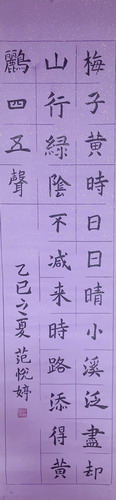 梅子黃時日日晴小溪泛盡却
山行綠陰不减来時路添得黃
鸝四五聲
乙巳之夏范悅婷